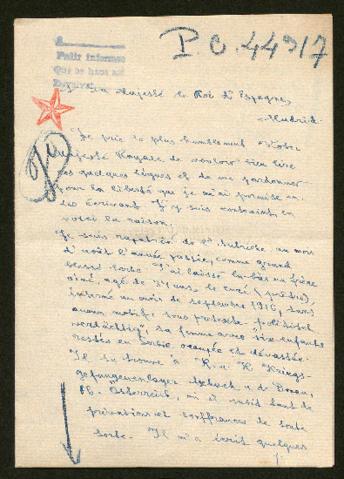 P.O. 449/17
A
Pedir informes
Que se haga así
A Sa Majesté le Roi d'Espagne,
Madrid.
Je prie le plus humblement Votre
Majesté Royale de vouloir bien lire
ces quelques lignes et de me pardonner
pour la liberté que je m'ai permise en
les écrivant. J'y suis contraint en
voici la raison.
Je suis rapatrié de l'Autriche, au mois
d'août l'année passée, comme grand
blessé serbe. J'ai laissé là-bas un frère
aîné, âgé de ans, le curé
interné au mois de septembre 1916, sans
aucun motif sous prétexte "politisch
verdächtig", sa femme avec six enfants
restés en Serbie occupée et dévastée.
Il se trouve à K. u. K. Kriegs-
gefangenenlager Aschach a. d. Donau,
Österreich, où il subit tant de
privations et souffrances de toute
sorte. Il m'a écrit quelques